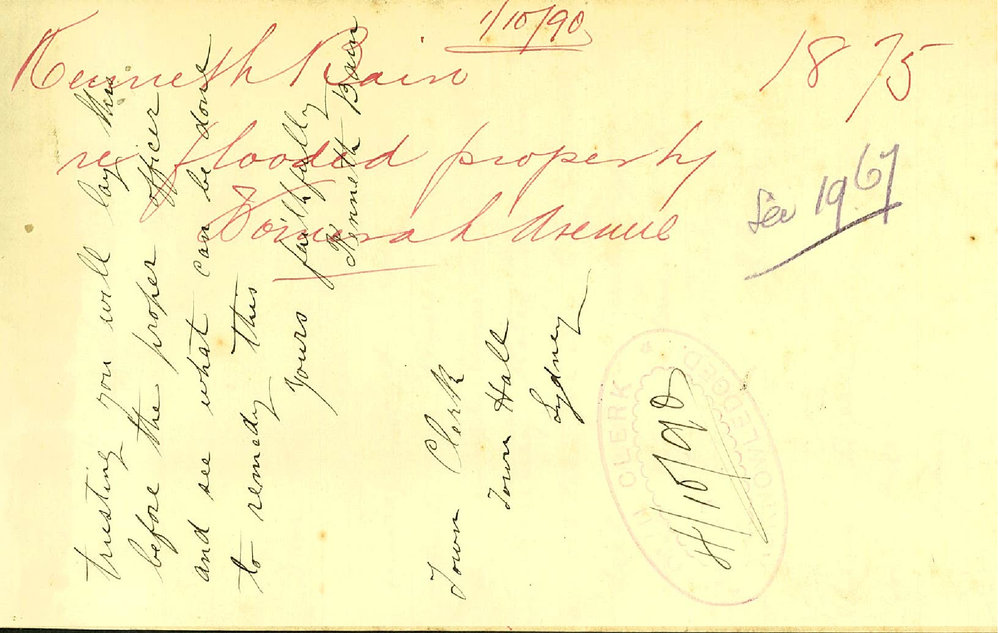 1/10/90
Kenneth Bain
1875
re flooded property
Womerah Avenue
See 1967
trusting you will lay this
before the proper officer
and see what can be done
to remedy this
Yours faithfully
Kenneth Bain
Town Clerk
Town Hall
Sydney
CLERK
/10/90